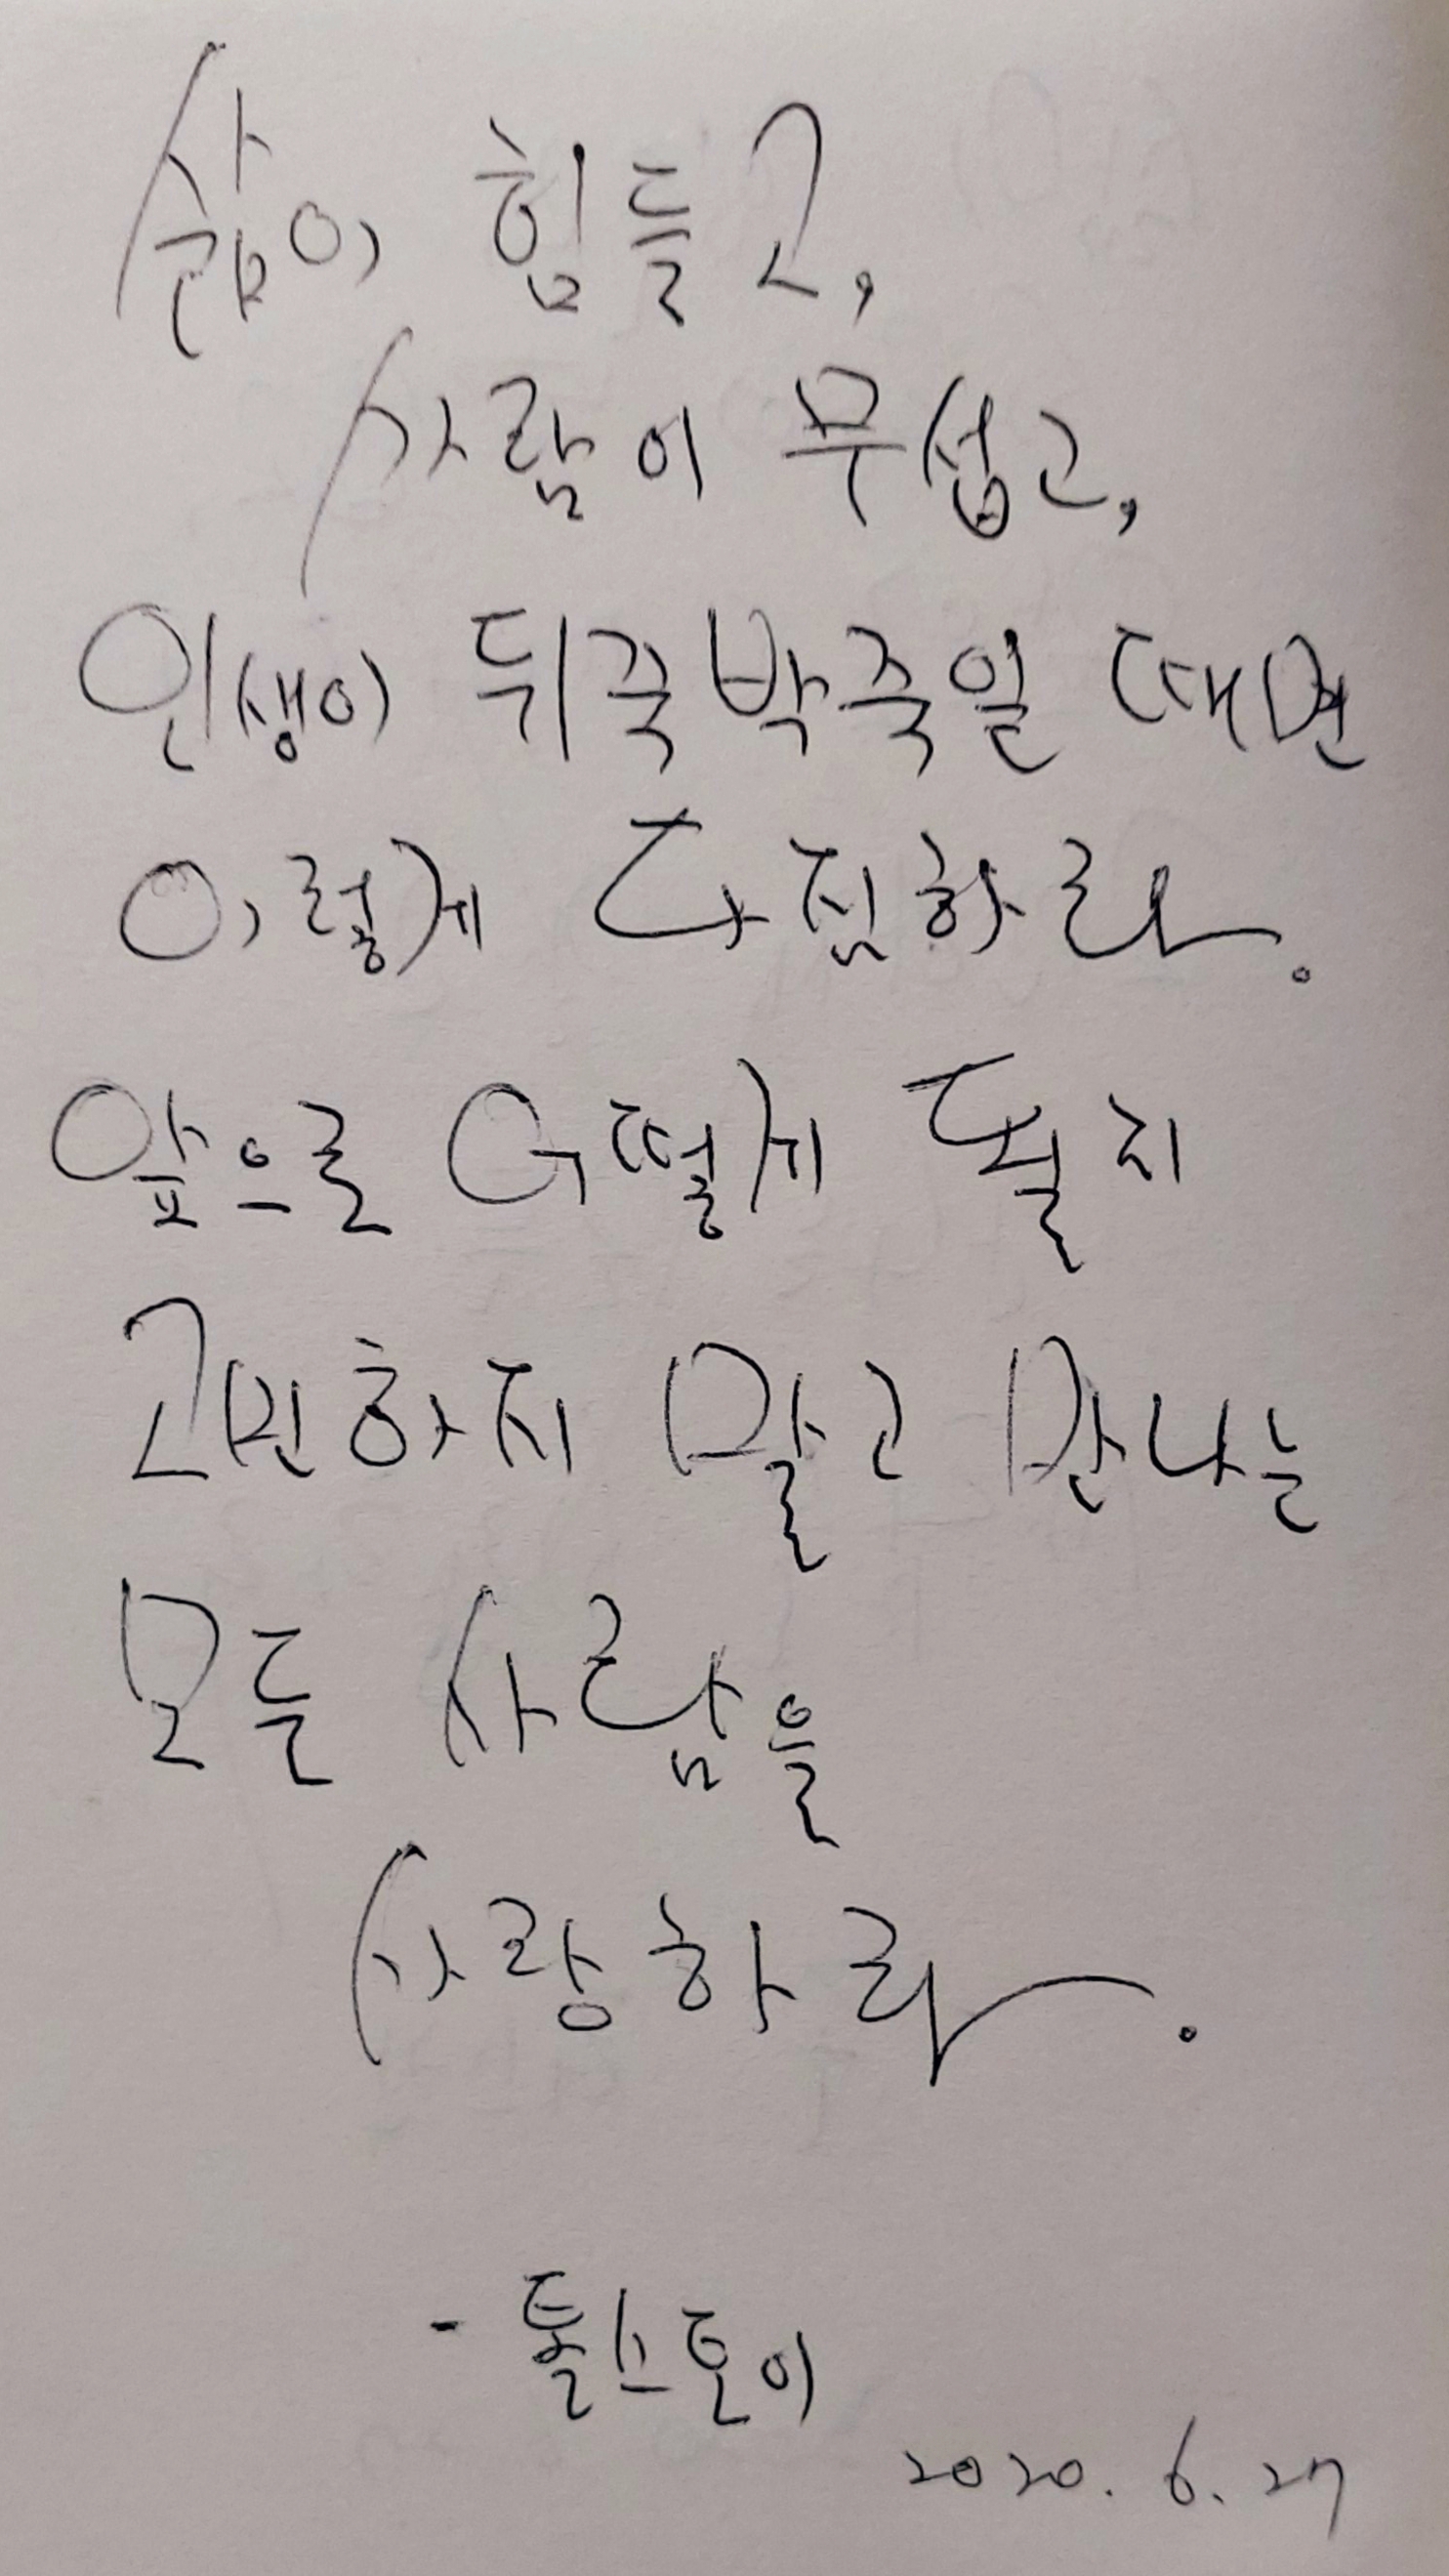 삶이 힘들고,
사람이 무섭고,
인생이 뒤죽박죽일 때면
이렇게 다짐하라.
앞으로 어떻게 될지
고민하지 말고 만나는
모든 사람을
사랑하라.
- 톨스토이
2020. 6. 27